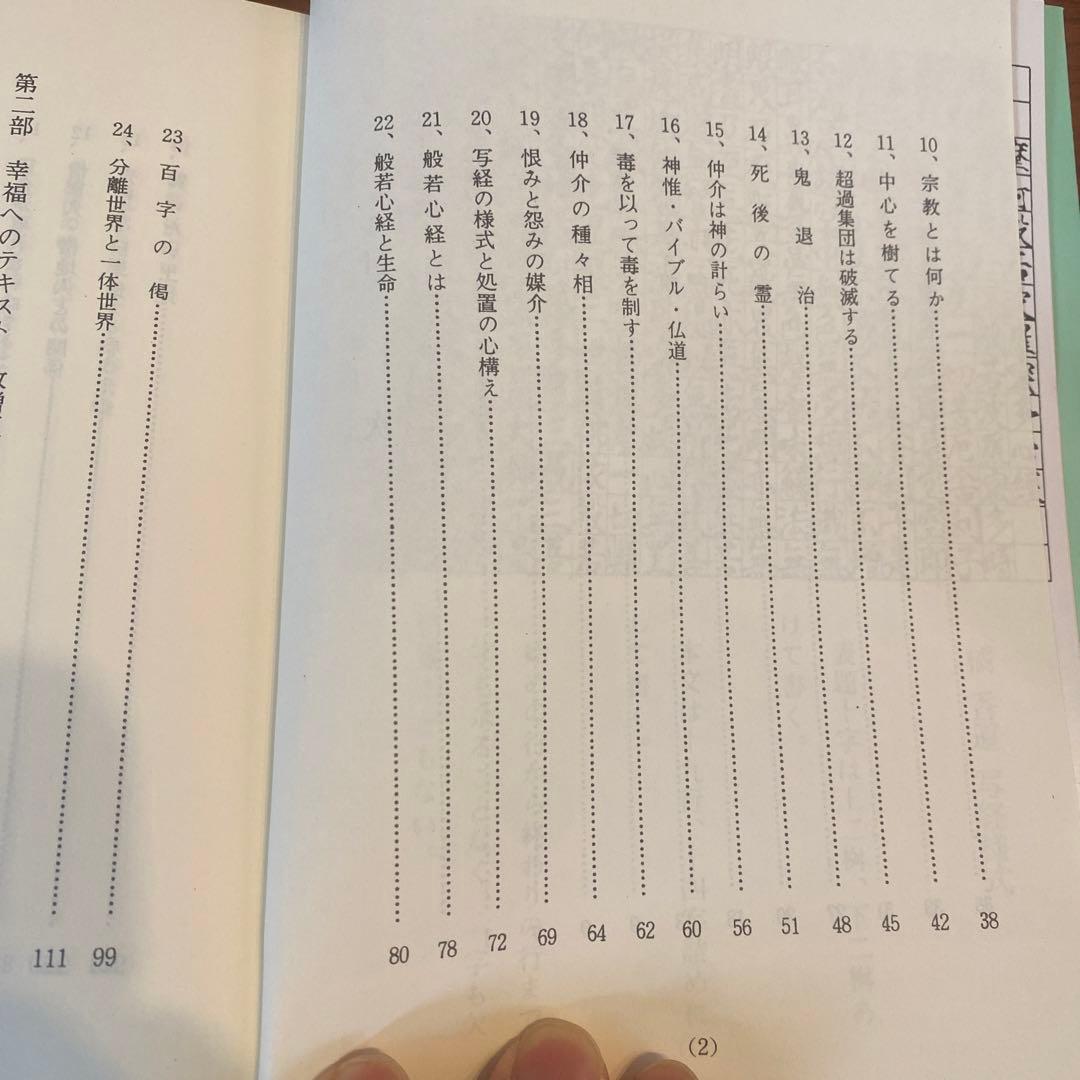 10、宗教とは何か……38
11、中心を樹てる……42
12、超過集団は破滅する……45
13、鬼退治……48
14、死後の霊……51
15、仲介は神の計らい……56
16、神惟・バイブル・仏道……60
17、毒を以って毒を制す……62
18、仲介の種々相……64
19、恨みと怨みの媒介……69
20、写経の様式と処置の心構え……72
21、般若心経とは……78
22、般若心経と生命……80
(2)
23、百字の偈……99
24、分離世界と一体世界……111
第二部 幸福へのテキスト